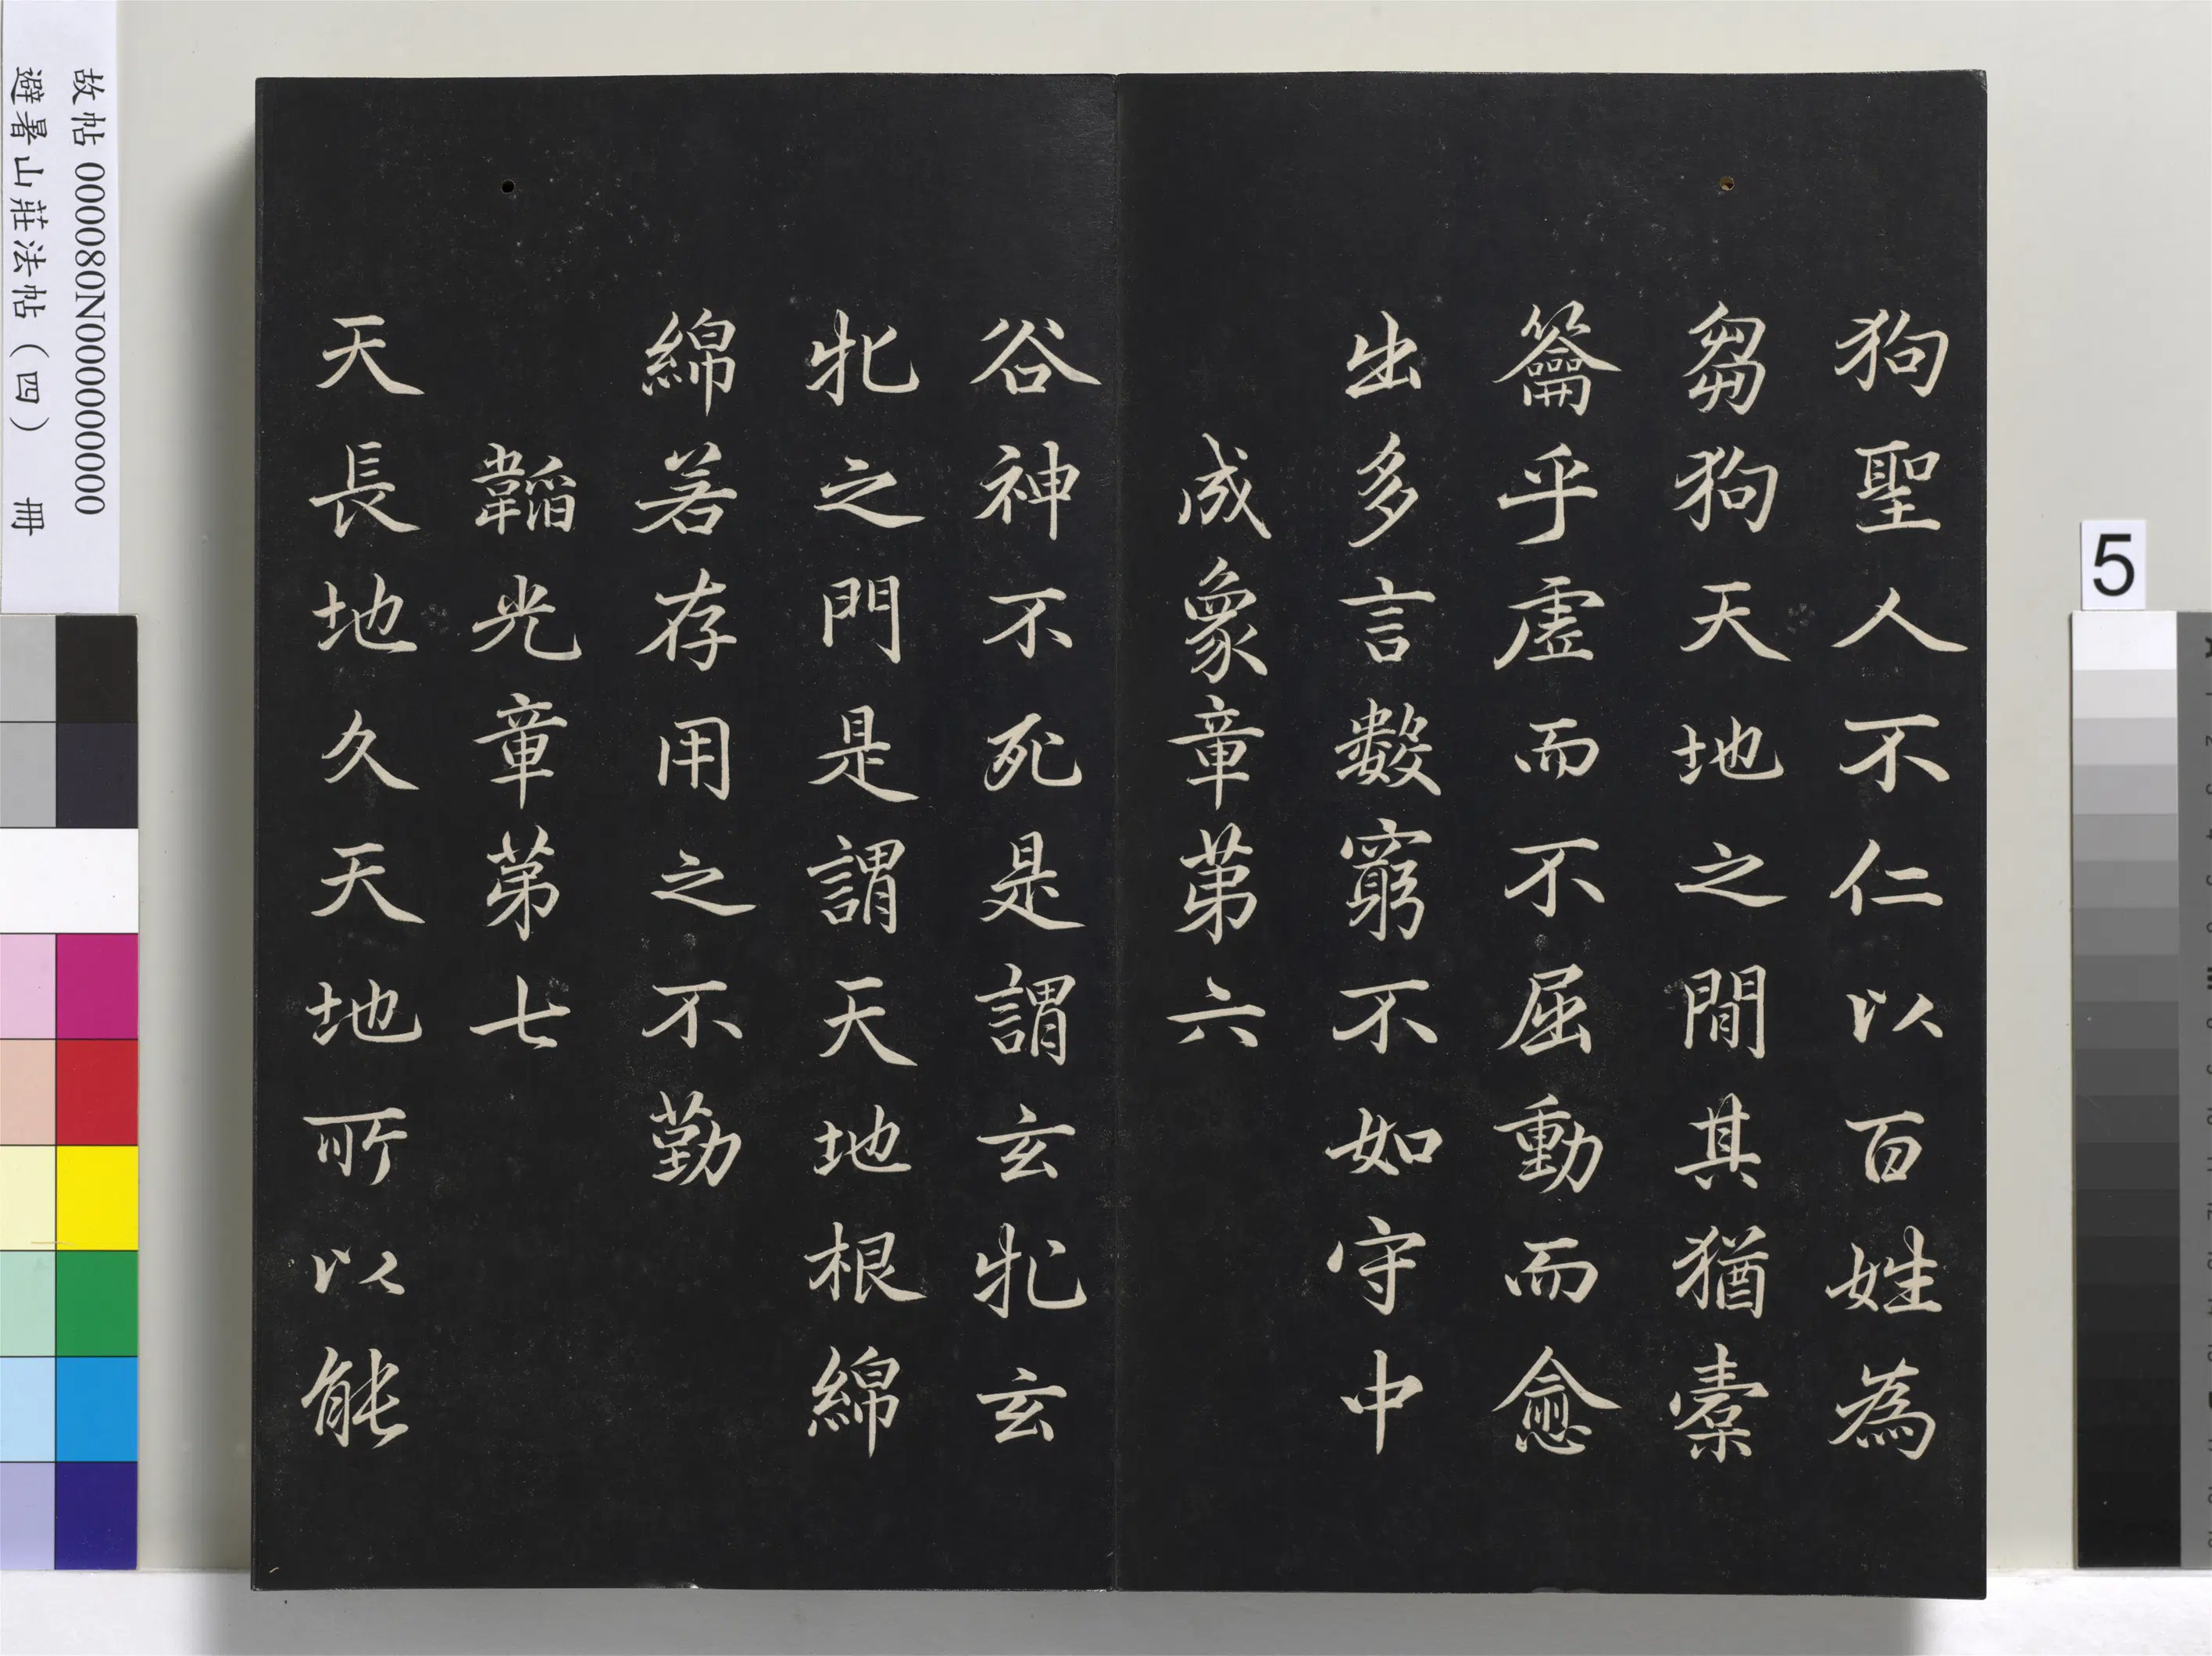 狗聖人不仁以百姓為
芻狗天地之間其猶橐
籥乎虛而不屈動而愈
出多言數窮不如守中
成象章第六
谷神不死是謂玄牝玄
牝之門是謂天地根綿
綿若存用之不勤
韜光章第七
天長地久天地所以能
故帖 000080N000000000
避暑山莊法帖（四） 冊
5